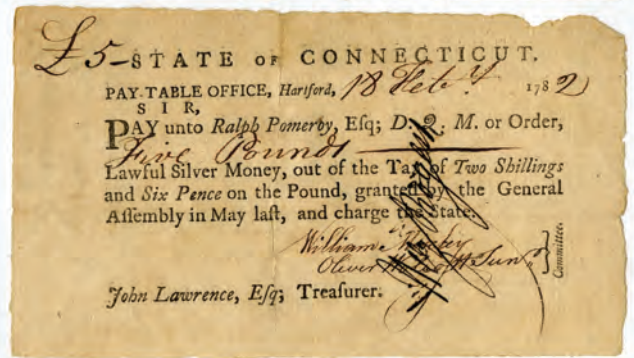 £5– STATE OF CONNECTICUT.
PAY-TABLE OFFICE, Hartford, 18 Feby 1782
SIR,
PAY unto Ralph Pomeroy, Eſq; D. Q. M. or Order,
Five Pounds
Lawful Silver Money, out of the Tax of Two Shillings
and Six Pence on the Pound, granted by the General
Aſſembly in May laſt, and charge the State.
William
Oliver Wolcott Junr
Committee.
John Lawrence, Eſq; Treaſurer.